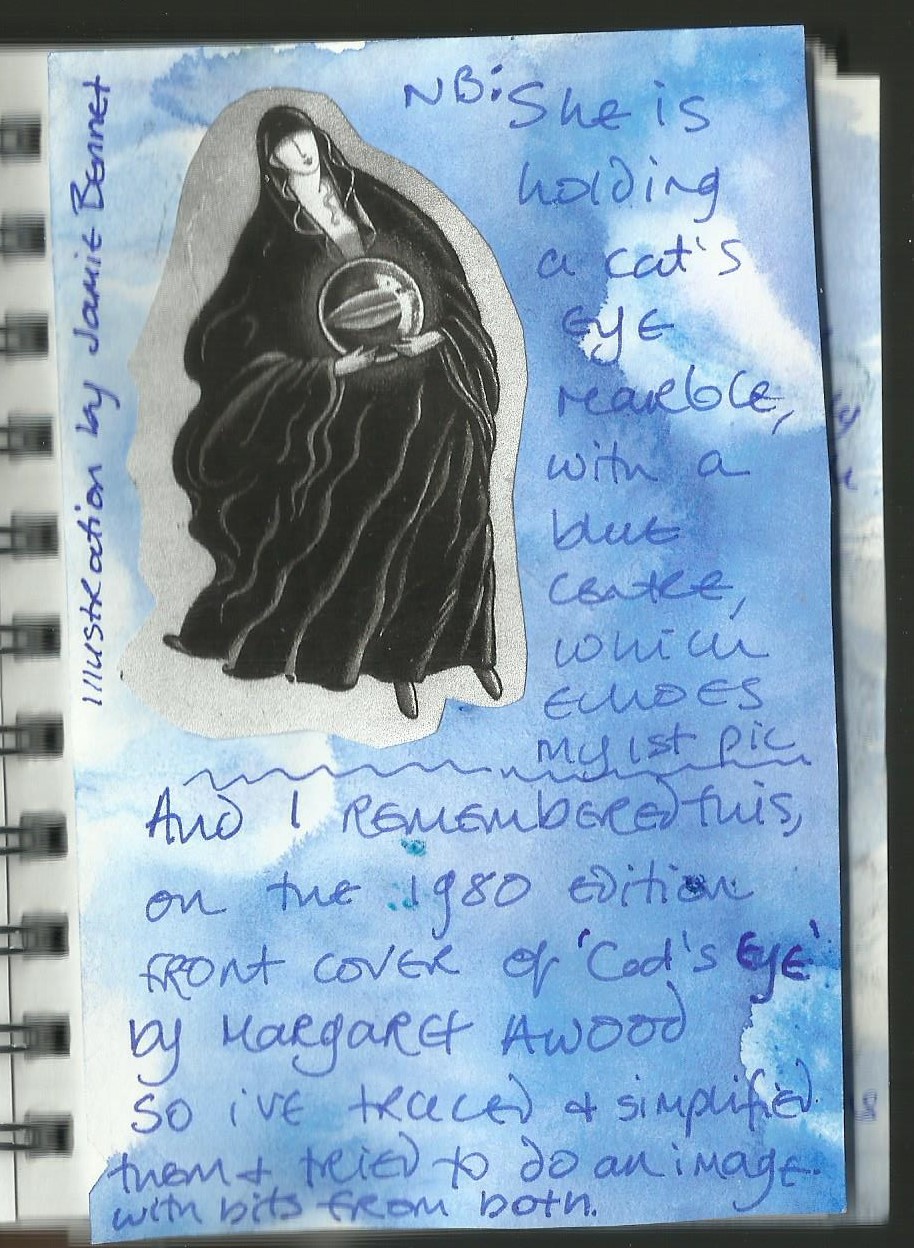 Illustration by Jamie Bennet
NB: She is
holding
a cat's
eye
marble,
with a
blue
centre,
which
echoes
my 1st pic
And I remembered this,
on the 1980 edition
front cover of 'Cat's Eye'
by Margaret Awood
So i've traced & simplified
them & tried to do an image.
with bits from both.